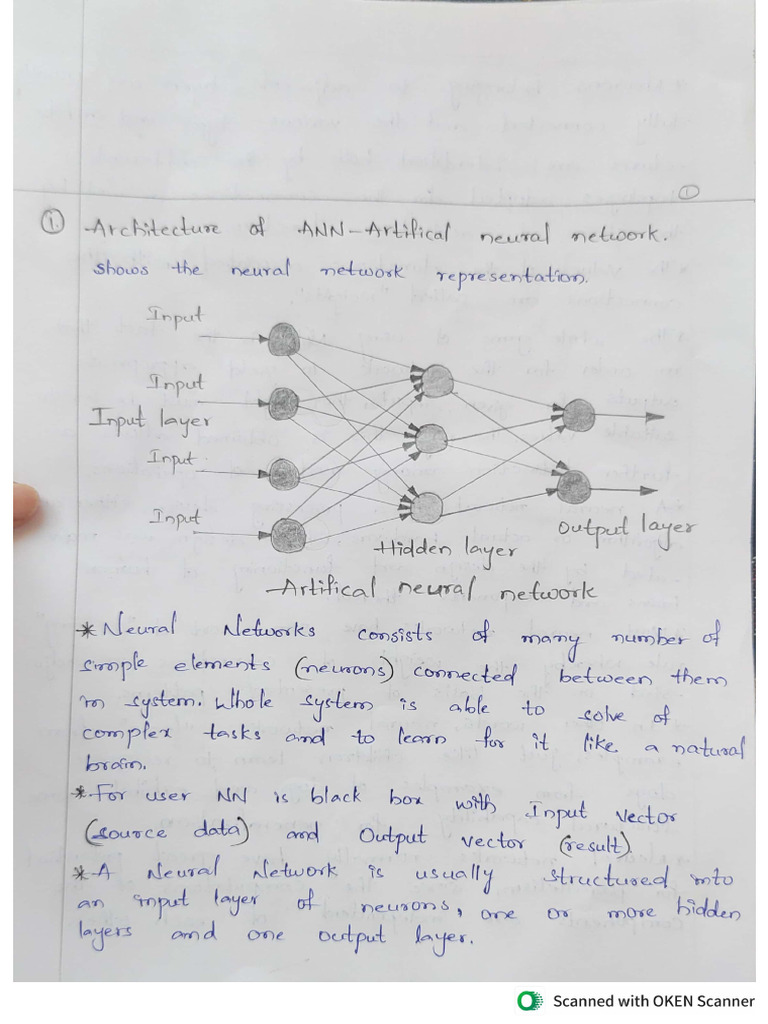 1
1. Architecture of ANN-Artifical neural network.
shows the neural network representation.
Input
Input
Input layer
Input
Input
Output layer
Hidden layer
Artifical neural network
* Neural Networks consists of many number of
simple elements (neurons) connected between them
in system. Whole system is able to solve of
complex tasks and to learn for it like a natural
brain.
* For user NN is black box with Input vector
(source data) and Output vector (result).
* A Neural Network is usually structured into
an input layer of neurons, one or more hidden
layers and one output layer.
Scanned with OKEN Scanner